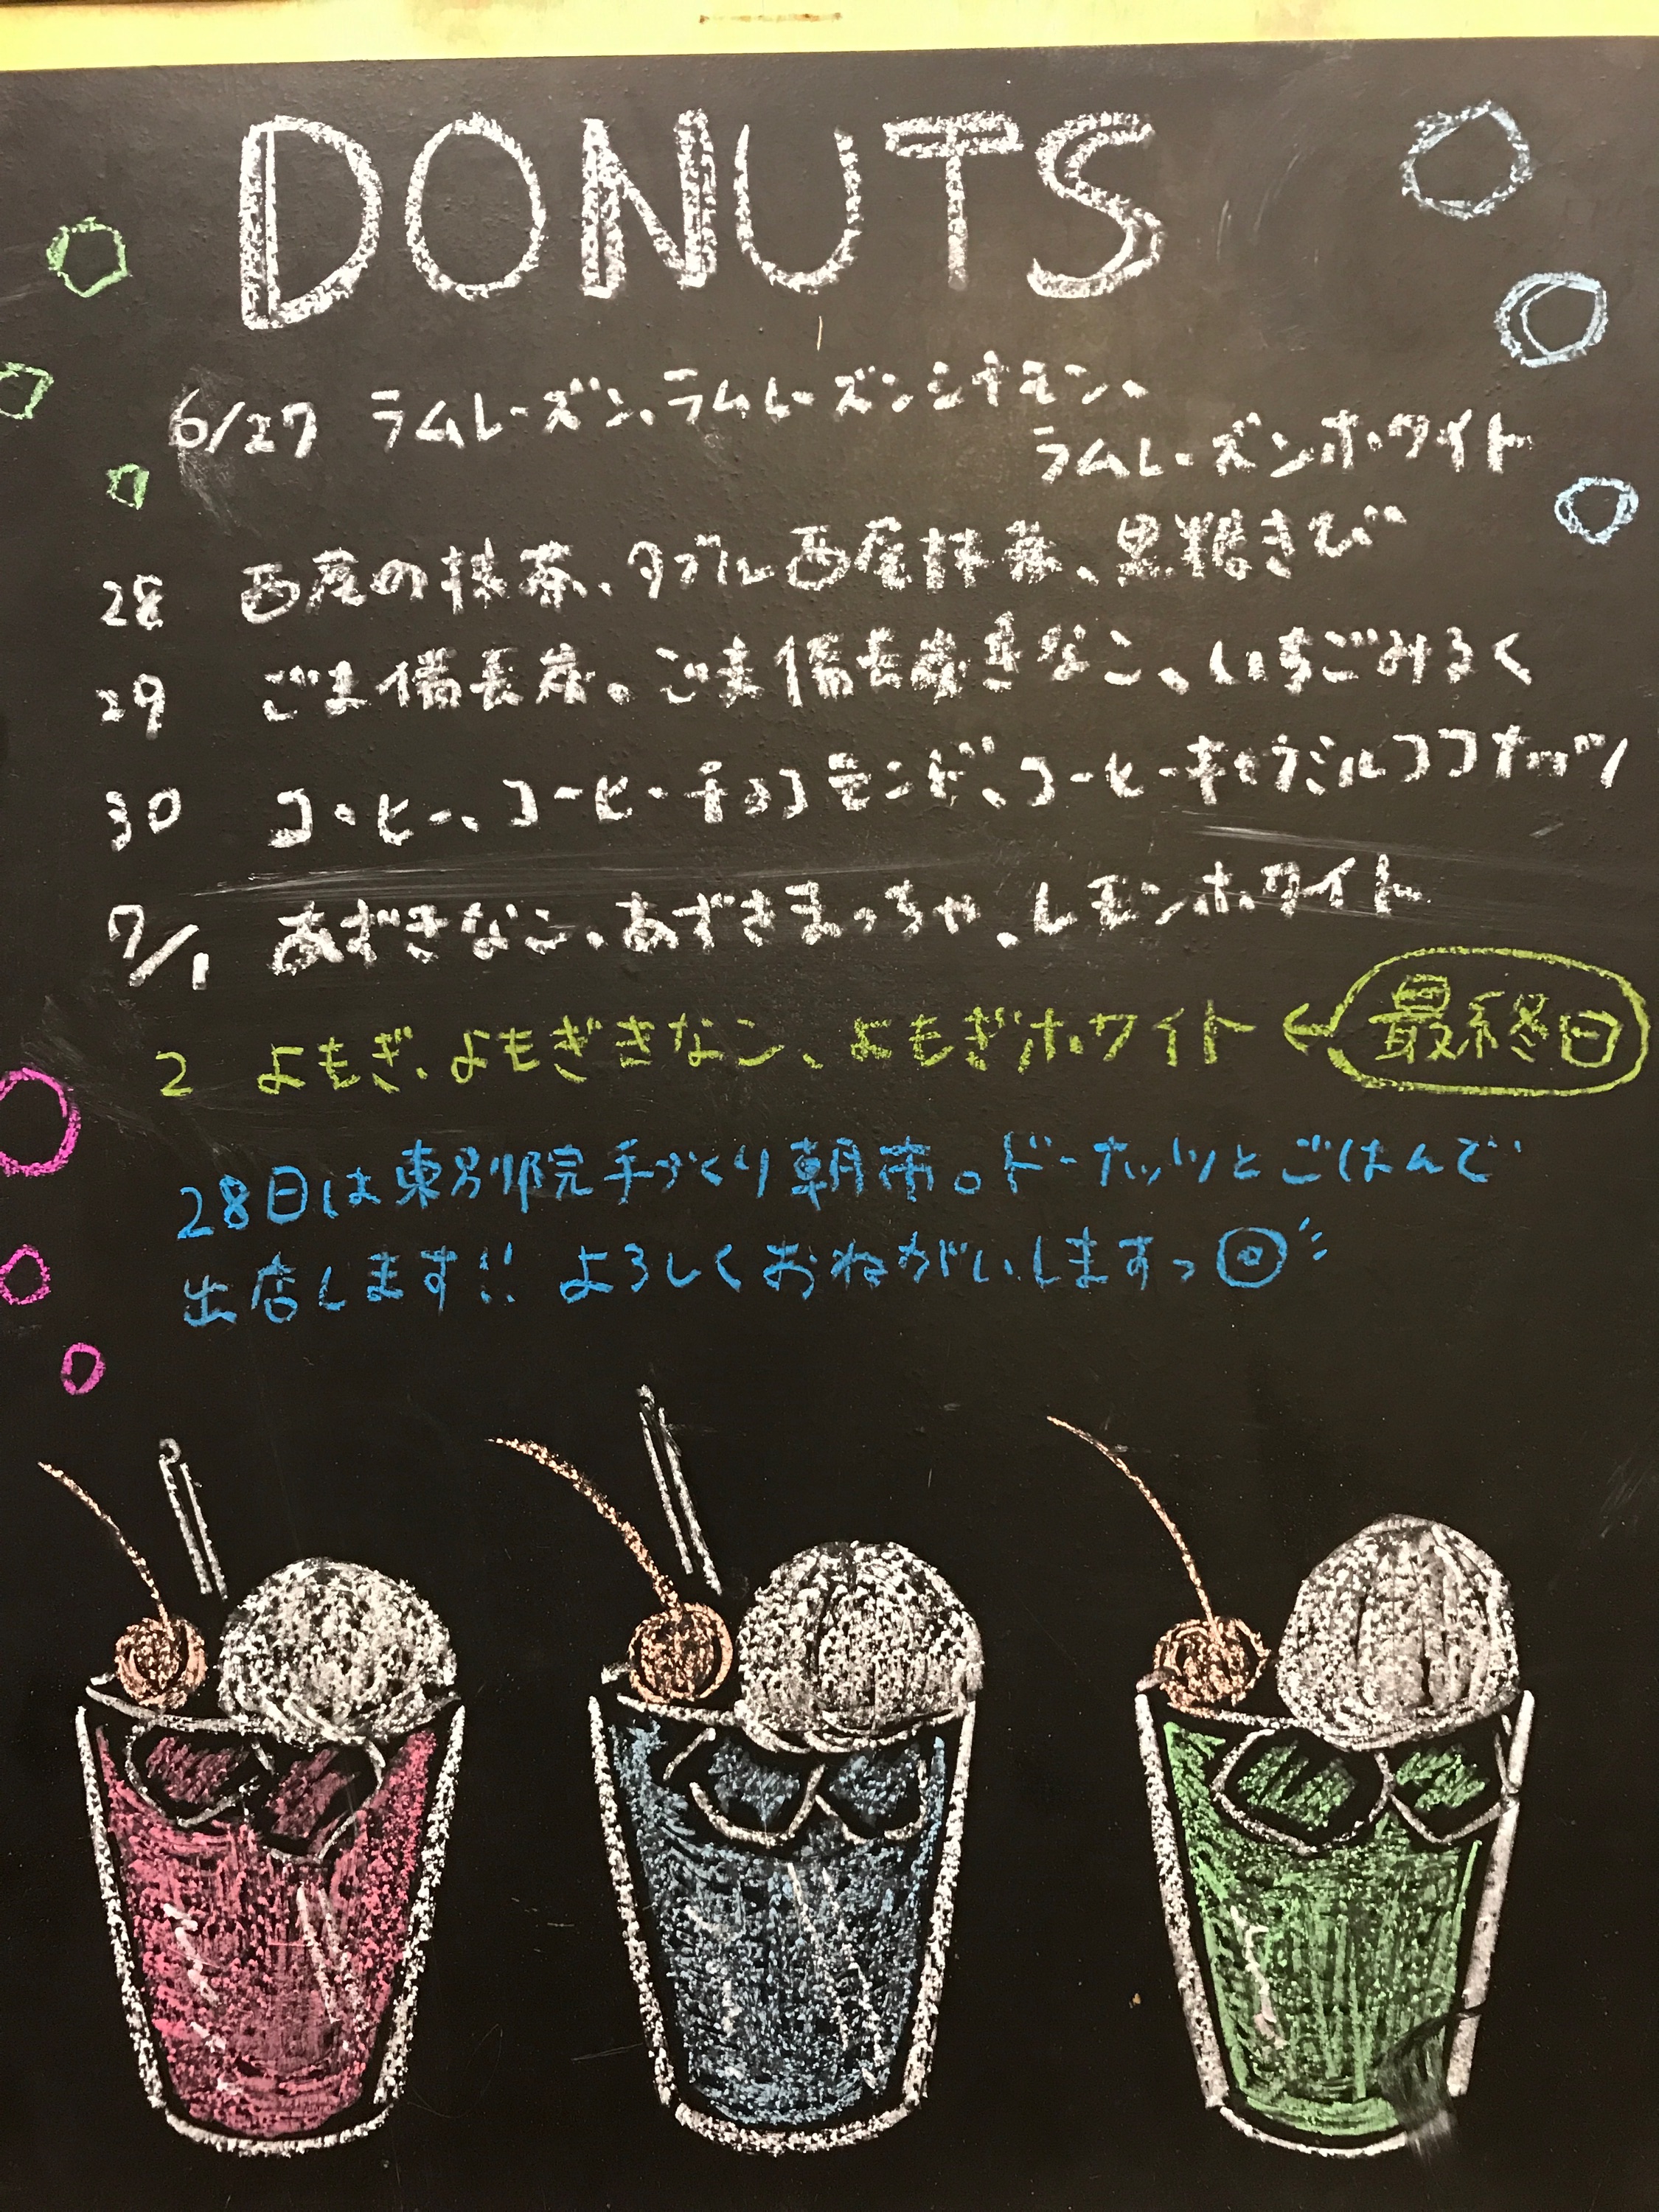 DONUTS
6/27 ラムレーズン、ラムレーズンシナモン、
ラムレーズンホワイト
28 西尾の抹茶、ダブル西尾抹茶、黒糖きび
29 ごま備長炭。ごま備長炭きなこ、いちごみるく
30 コーヒー、コーヒーチョコモンド、コーヒーキャラミルココナッツ
7/1 あずきなこ、あずきまっちゃ、レモンホワイト
2 よもぎ、よもぎきなこ、よもぎホワイト ← 最終日
28日は東別院手づくり朝市。ドーナッツとごはんで
出店します!! よろしくおねがいしますっ